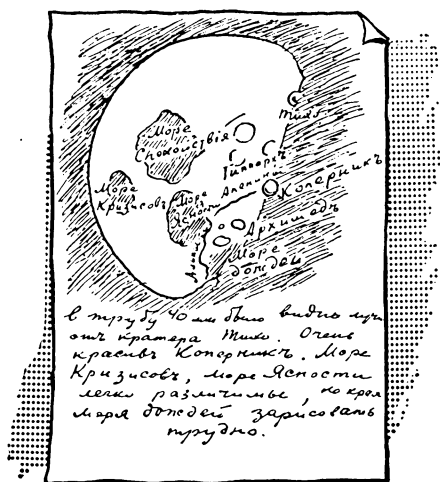 Тихо
Море
Спокойствія
Гиппархъ
Апенины
Коперникъ
Море
Кризисовъ
Море
Ясности
Архимедъ
Море
дождей
в трубу 40 мм было видно лучи
отъ кратера Тихо. Очень
красивъ Коперникъ. Море
Кризисовъ, море Ясности
легко различимы, но края
моря дождей зарисовать
трудно.